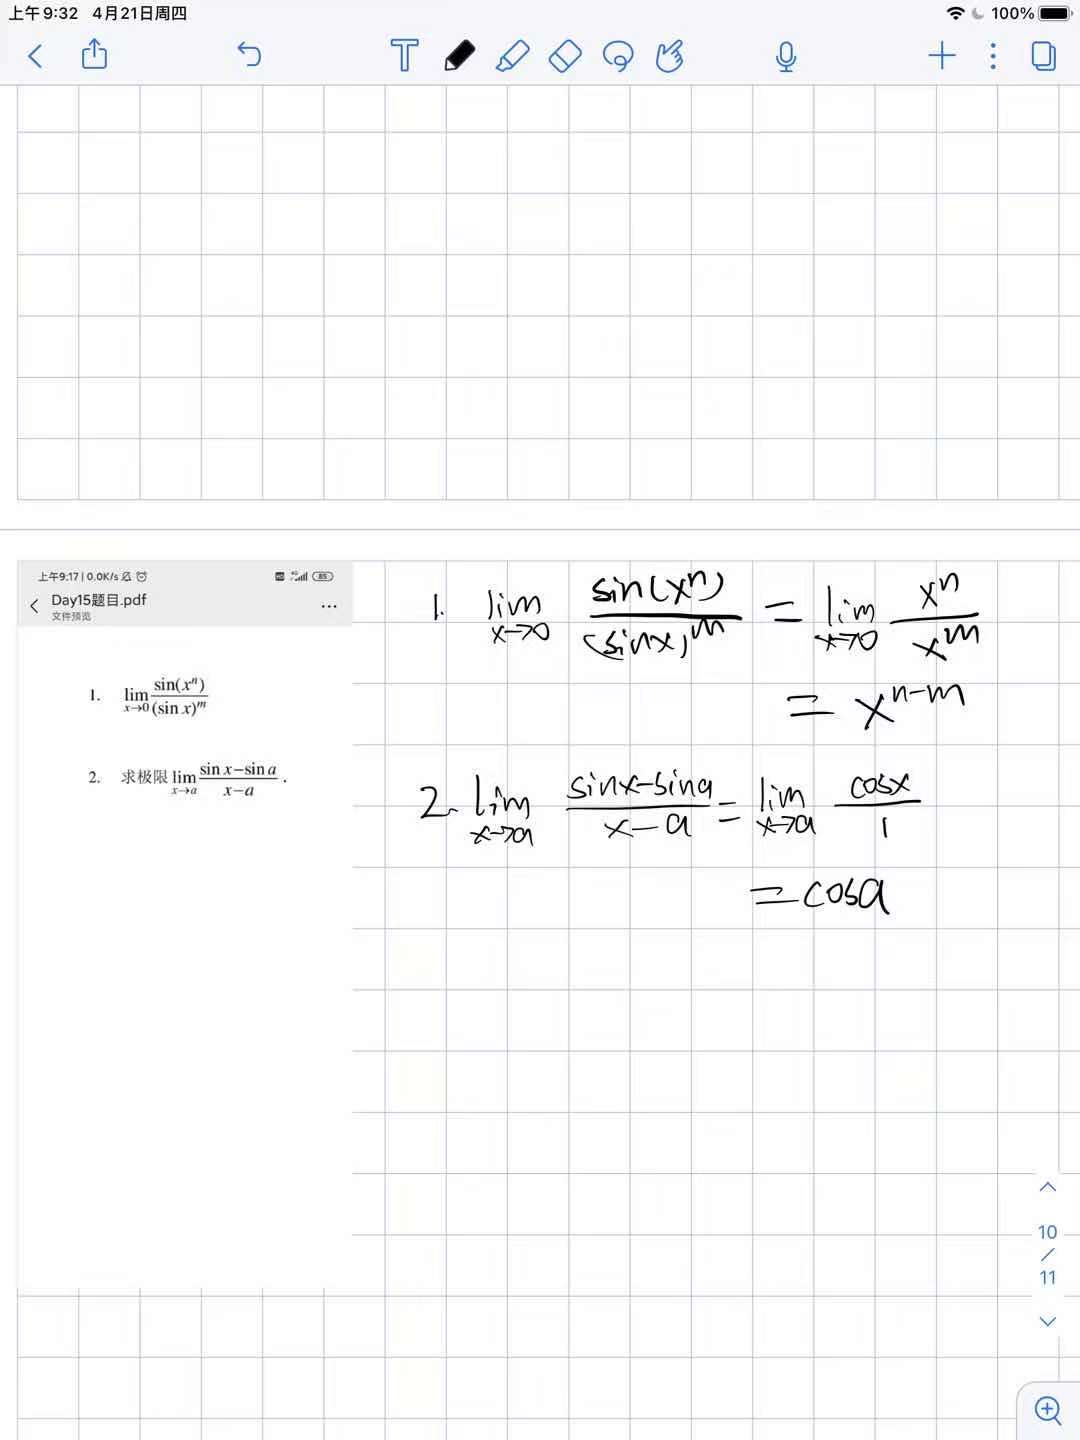 上午9:32 4月21日周四
100%
T
上午9:17 | 0.0K/s
85
Day15题目.pdf
文件预览
1. lim x→0 sin(xⁿ)/(sin x)ᵐ
2. 求极限 lim x→a (sin x−sin a)/(x−a) .
1. lim x→0 sin(xⁿ)/(sinx)ᵐ = lim x→0 xⁿ/xᵐ
= xⁿ⁻ᵐ
2. lim x→a (sinx-sina)/(x-a) = lim x→a cosx/1
= cosa
10
/
11